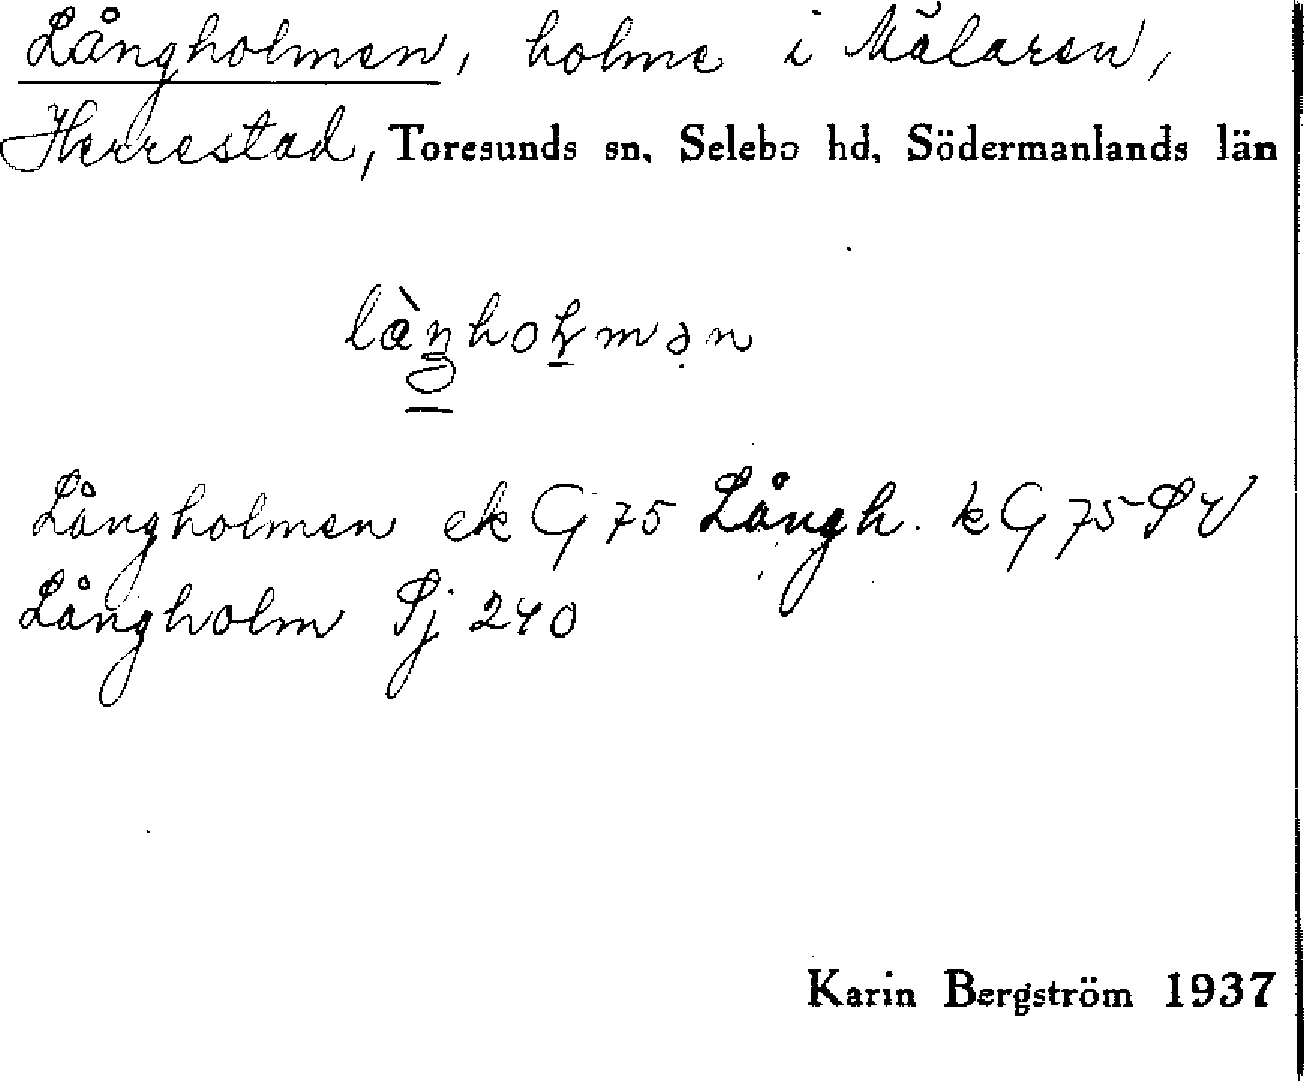 Långholmen, holme i Mälaren,
Herrestad, Toresunds sn, Selebo hd, Södermanlands län
Långholmen ek G 75 Långh. k G 75 SV
Långholm Sj 240
Karin Bergström 1937